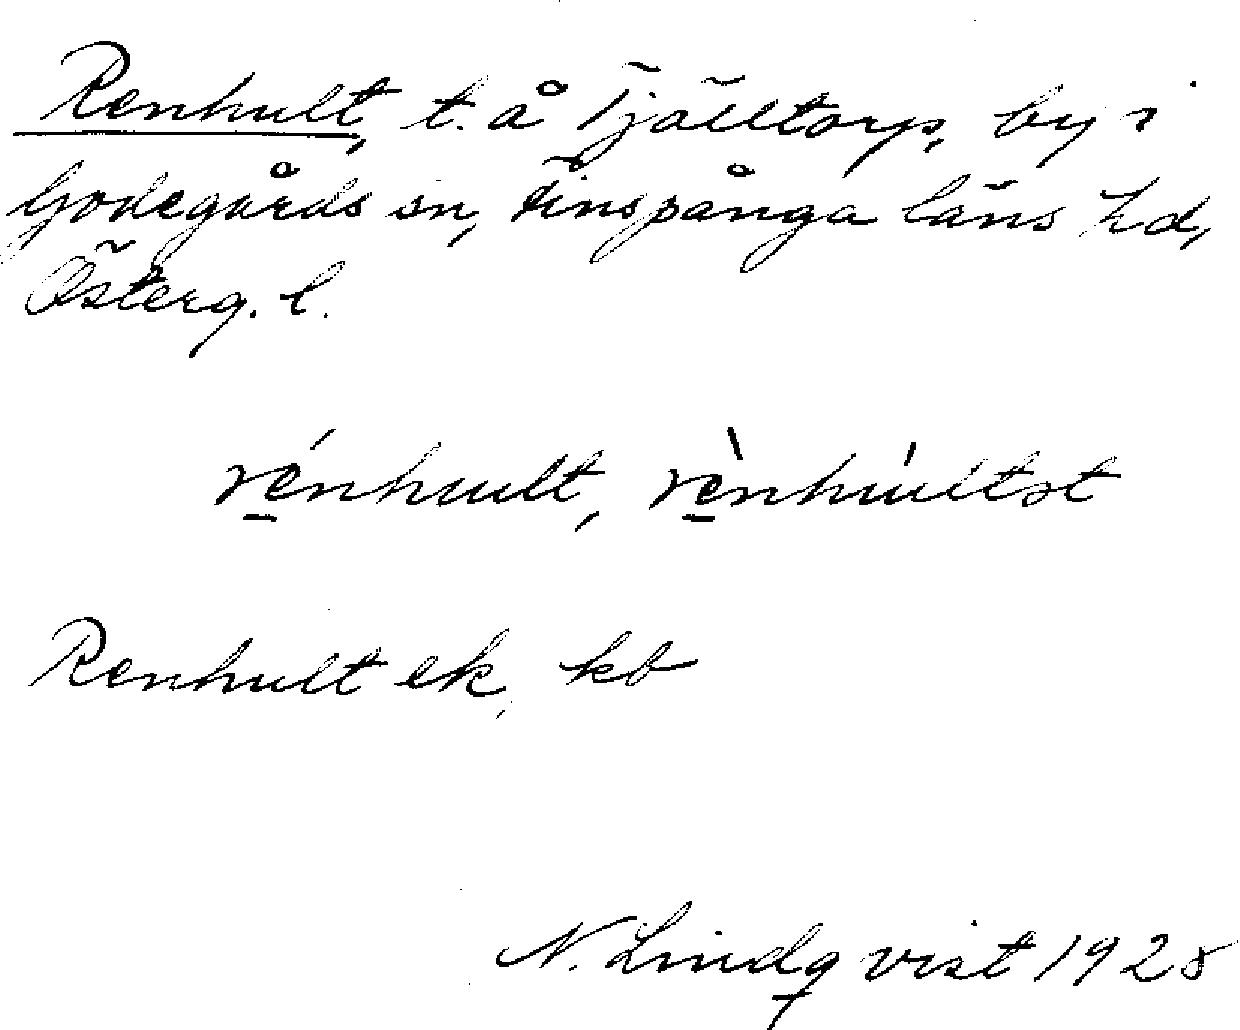 Renhult, t. å Tjälltorp, by i
Godegårds sn, Finspånga läns hd,
Österg. l.
rénhult, rènhúltst
Renhult ek, kb
N. Lindqvist 1928